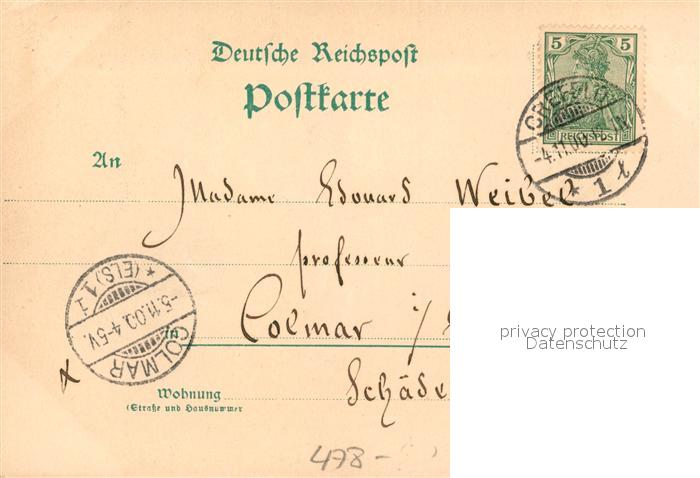 Deutsche Reichspost
Postkarte
5 5
REICHSPOST
CREFELD
-4.11.00.
* 1 l
An
Madame Edouard Weibel
professeur
Colmar i/
Schäde
COLMAR
-5.11.00. 4-5V.
* (ELS.) 1
in
Wohnung
(Straße und Hausnummer
privacy protection
Datenschutz
478-